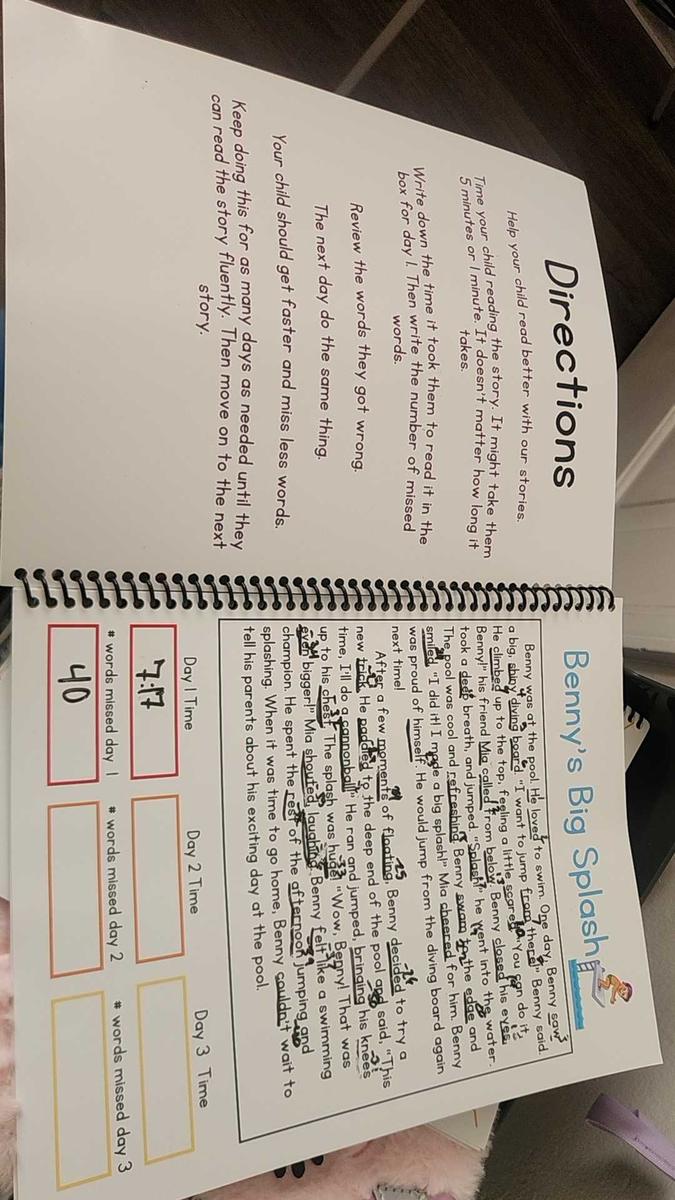 Directions
Help your child read better with our stories.
Time your child reading the story. It might take them
5 minutes or 1 minute. It doesn't matter how long it
takes.
Write down the time it took them to read it in the
box for day 1. Then write the number of missed
words.
Review the words they got wrong.
The next day do the same thing.
Your child should get faster and miss less words.
Keep doing this for as many days as needed until they
can read the story fluently. Then move on to the next
story.
Benny's Big Splash
Benny was at the pool. He loved to swim. One day, Benny saw
a big, shiny diving board. "I want to jump from there!" Benny said.
He climbed up to the top, feeling a little scared. "You can do it,
Benny!" his friend Mia called from below. Benny closed his eyes,
took a deep breath, and jumped. "Splash!" he went into the water.
The pool was cool and refreshing. Benny swam to the edge and
smiled. "I did it! I made a big splash!" Mia cheered for him. Benny
was proud of himself. He would jump from the diving board again
next time!
After a few moments of floating, Benny decided to try a
new trick. He paddled to the deep end of the pool and said, "This
time, I'll do a cannonball!" He ran and jumped, bringing his knees
up to his chest. The splash was huge! "Wow, Benny! That was
even bigger!" Mia shouted, laughing. Benny felt like a swimming
champion. He spent the rest of the afternoon jumping and
splashing. When it was time to go home, Benny couldn't wait to
tell his parents about his exciting day at the pool.
Day 1 Time
Day 2 Time
Day 3 Time
7:17
# words missed day 1
# words missed day 2
# words missed day 3
40